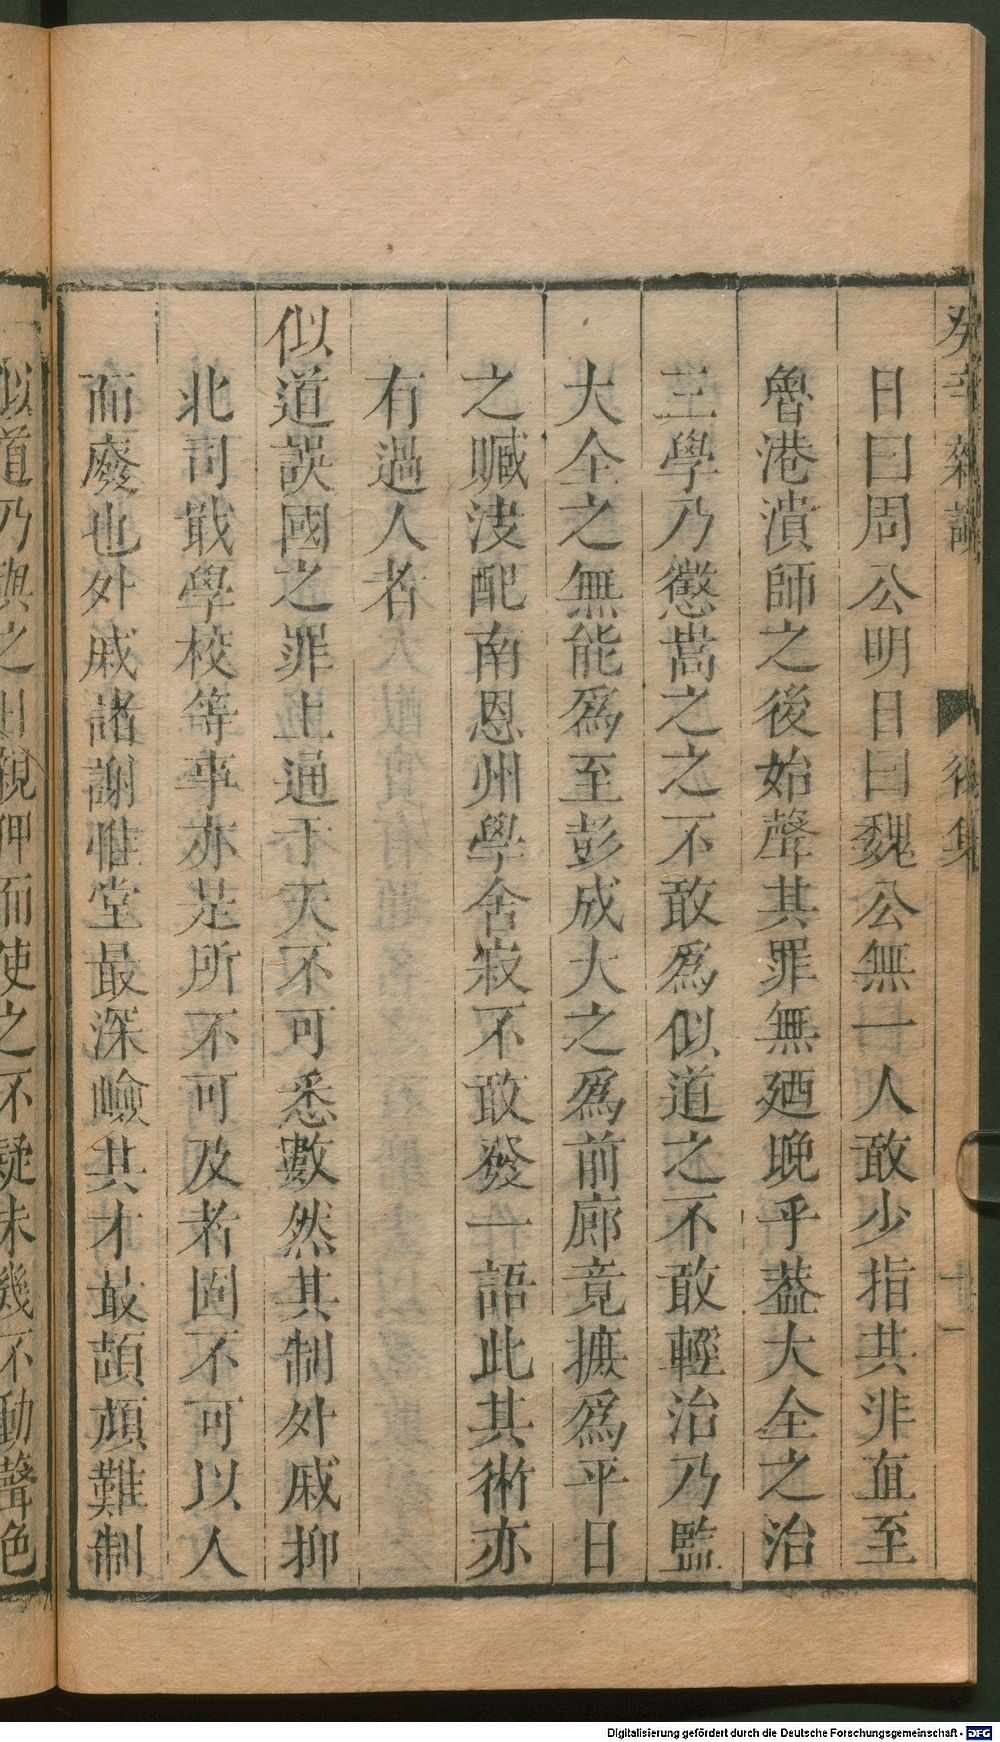 癸辛雜識
後集
十一
日曰周公明日曰魏公無一人敢少指其非直至
魯港潰師之後始聲其罪無廼晚乎葢大全之治
三學乃懲嵩之之不敢爲似道之不敢輕治乃監
大全之無能爲至彭成大之爲前廊竟摭爲平日
之贓決配南恩州學舍寂不敢發一語此其術亦
有過人者
似道誤國之罪上通于天不可悉數然其制外戚抑
北司戢學校等事亦是所不可及者固不可以人
而廢也外戚諸謝惟堂最深嶮其才最頡頏難制
似道乃與之日親狎而使之不疑未幾不動聲色
Digitalisierung gefördert durch die Deutsche Forschungsgemeinschaft - DFG